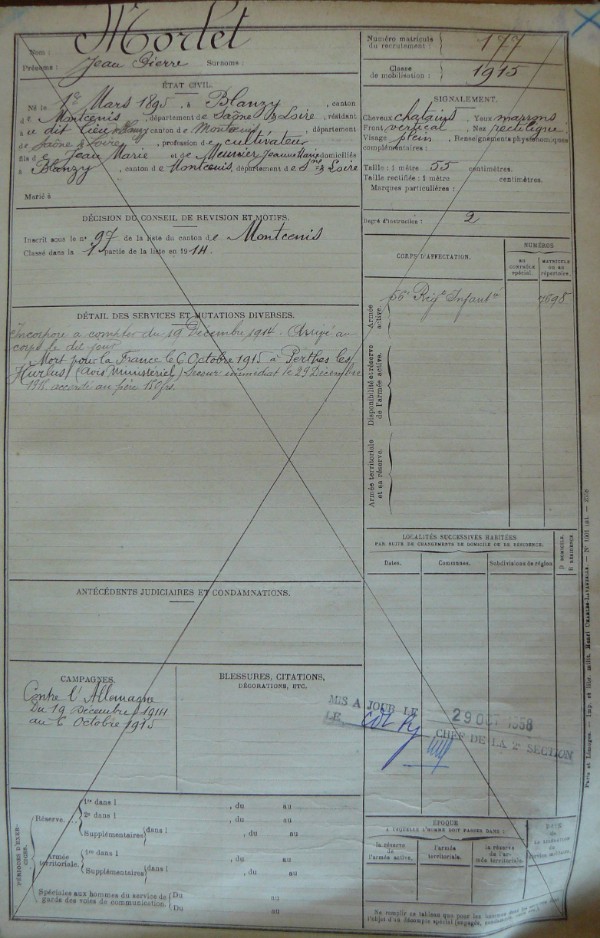 Morlet
Nom :
Prénoms : Jean Pierre Surnoms :
Numéro matricule
du recrutement : 177
Classe
de mobilisation : 1915
ÉTAT CIVIL.
Né le 1er Mars 1895, à Blanzy, canton
de Montcenis, département de Saône & Loire, résidant
à ce dit lieu canton de Montcenis département
de Saône & Loire, profession de cultivateur
fils de Jean Marie et de Meunier Jeanne Marie domiciliés
à Blanzy, canton de Montcenis, département de S. & Loire
Marié à
SIGNALEMENT.
Cheveux châtains Yeux marrons
Front vertical Nez rectiligne
Visage plein Renseignements physionomiques
complémentaires :
Taille : 1 mètre 55 centimètres.
Taille rectifiée : 1 mètre centimètres.
Marques particulières :
Degré d'instruction : 2
DÉCISION DU CONSEIL DE REVISION ET MOTIFS.
Inscrit sous le no 97 de la liste du canton de Montcenis
Classé dans la 1 partie de la liste en 1914.
CORPS D'AFFECTATION.
NUMÉROS
AU
CONTRÔLE
SPÉCIAL.
MATRICULE
OU AU
RÉPERTOIRE.
Armée
active.
56e Régt Infantie
7698
Disponibilité et réserve
de l'armée active.
Armée territoriale
et sa réserve.
DÉTAIL DES SERVICES ET MUTATIONS DIVERSES.
Incorporé à compter du 19 Décembre 1914. Arrivé au
corps le dit jour
Mort pour la France le 6 Octobre 1915 à Perthes les
Hurlus (Avis Ministériel) Secours immédiat le 29 Décembre
accordé au père 150 frs.
LOCALITÉS SUCCESSIVES HABITÉES
PAR SUITE DE CHANGEMENTS DE DOMICILE OU DE RÉSIDENCE.
Dates.
Communes.
Subdivisions de région
D DOMICILE.
R RÉSIDENCE.
ANTÉCÉDENTS JUDICIAIRES ET CONDAMNATIONS.
CAMPAGNES.
Contre l'Allemagne
Du 19 Décembre 1914
au 6 Octobre 1915
BLESSURES, CITATIONS,
DÉCORATIONS, ETC.
MIS A JOUR LE 29 OCT 1958
LE CHEF DE LA 2e SECTION
PÉRIODES D'EXERCICES.
Réserve.
1re dans l , du au
2e dans l , du au
Supplémentaires dans l , du au
dans l , du au
Armée
territoriale.
1re dans l , du au
Supplémentaires dans l , du au
dans l , du au
Spéciales aux hommes du service de
gardes des voies de communication.
Du au
Du au
ÉPOQUE
À LAQUELLE L'HOMME DOIT PASSER DANS :
la réserve
de l'armée active.
l'armée
territoriale.
la réserve
de l'armée territoriale.
DATE
de la
libération
du
service militaire.
Ne remplir ce tableau que pour les hommes